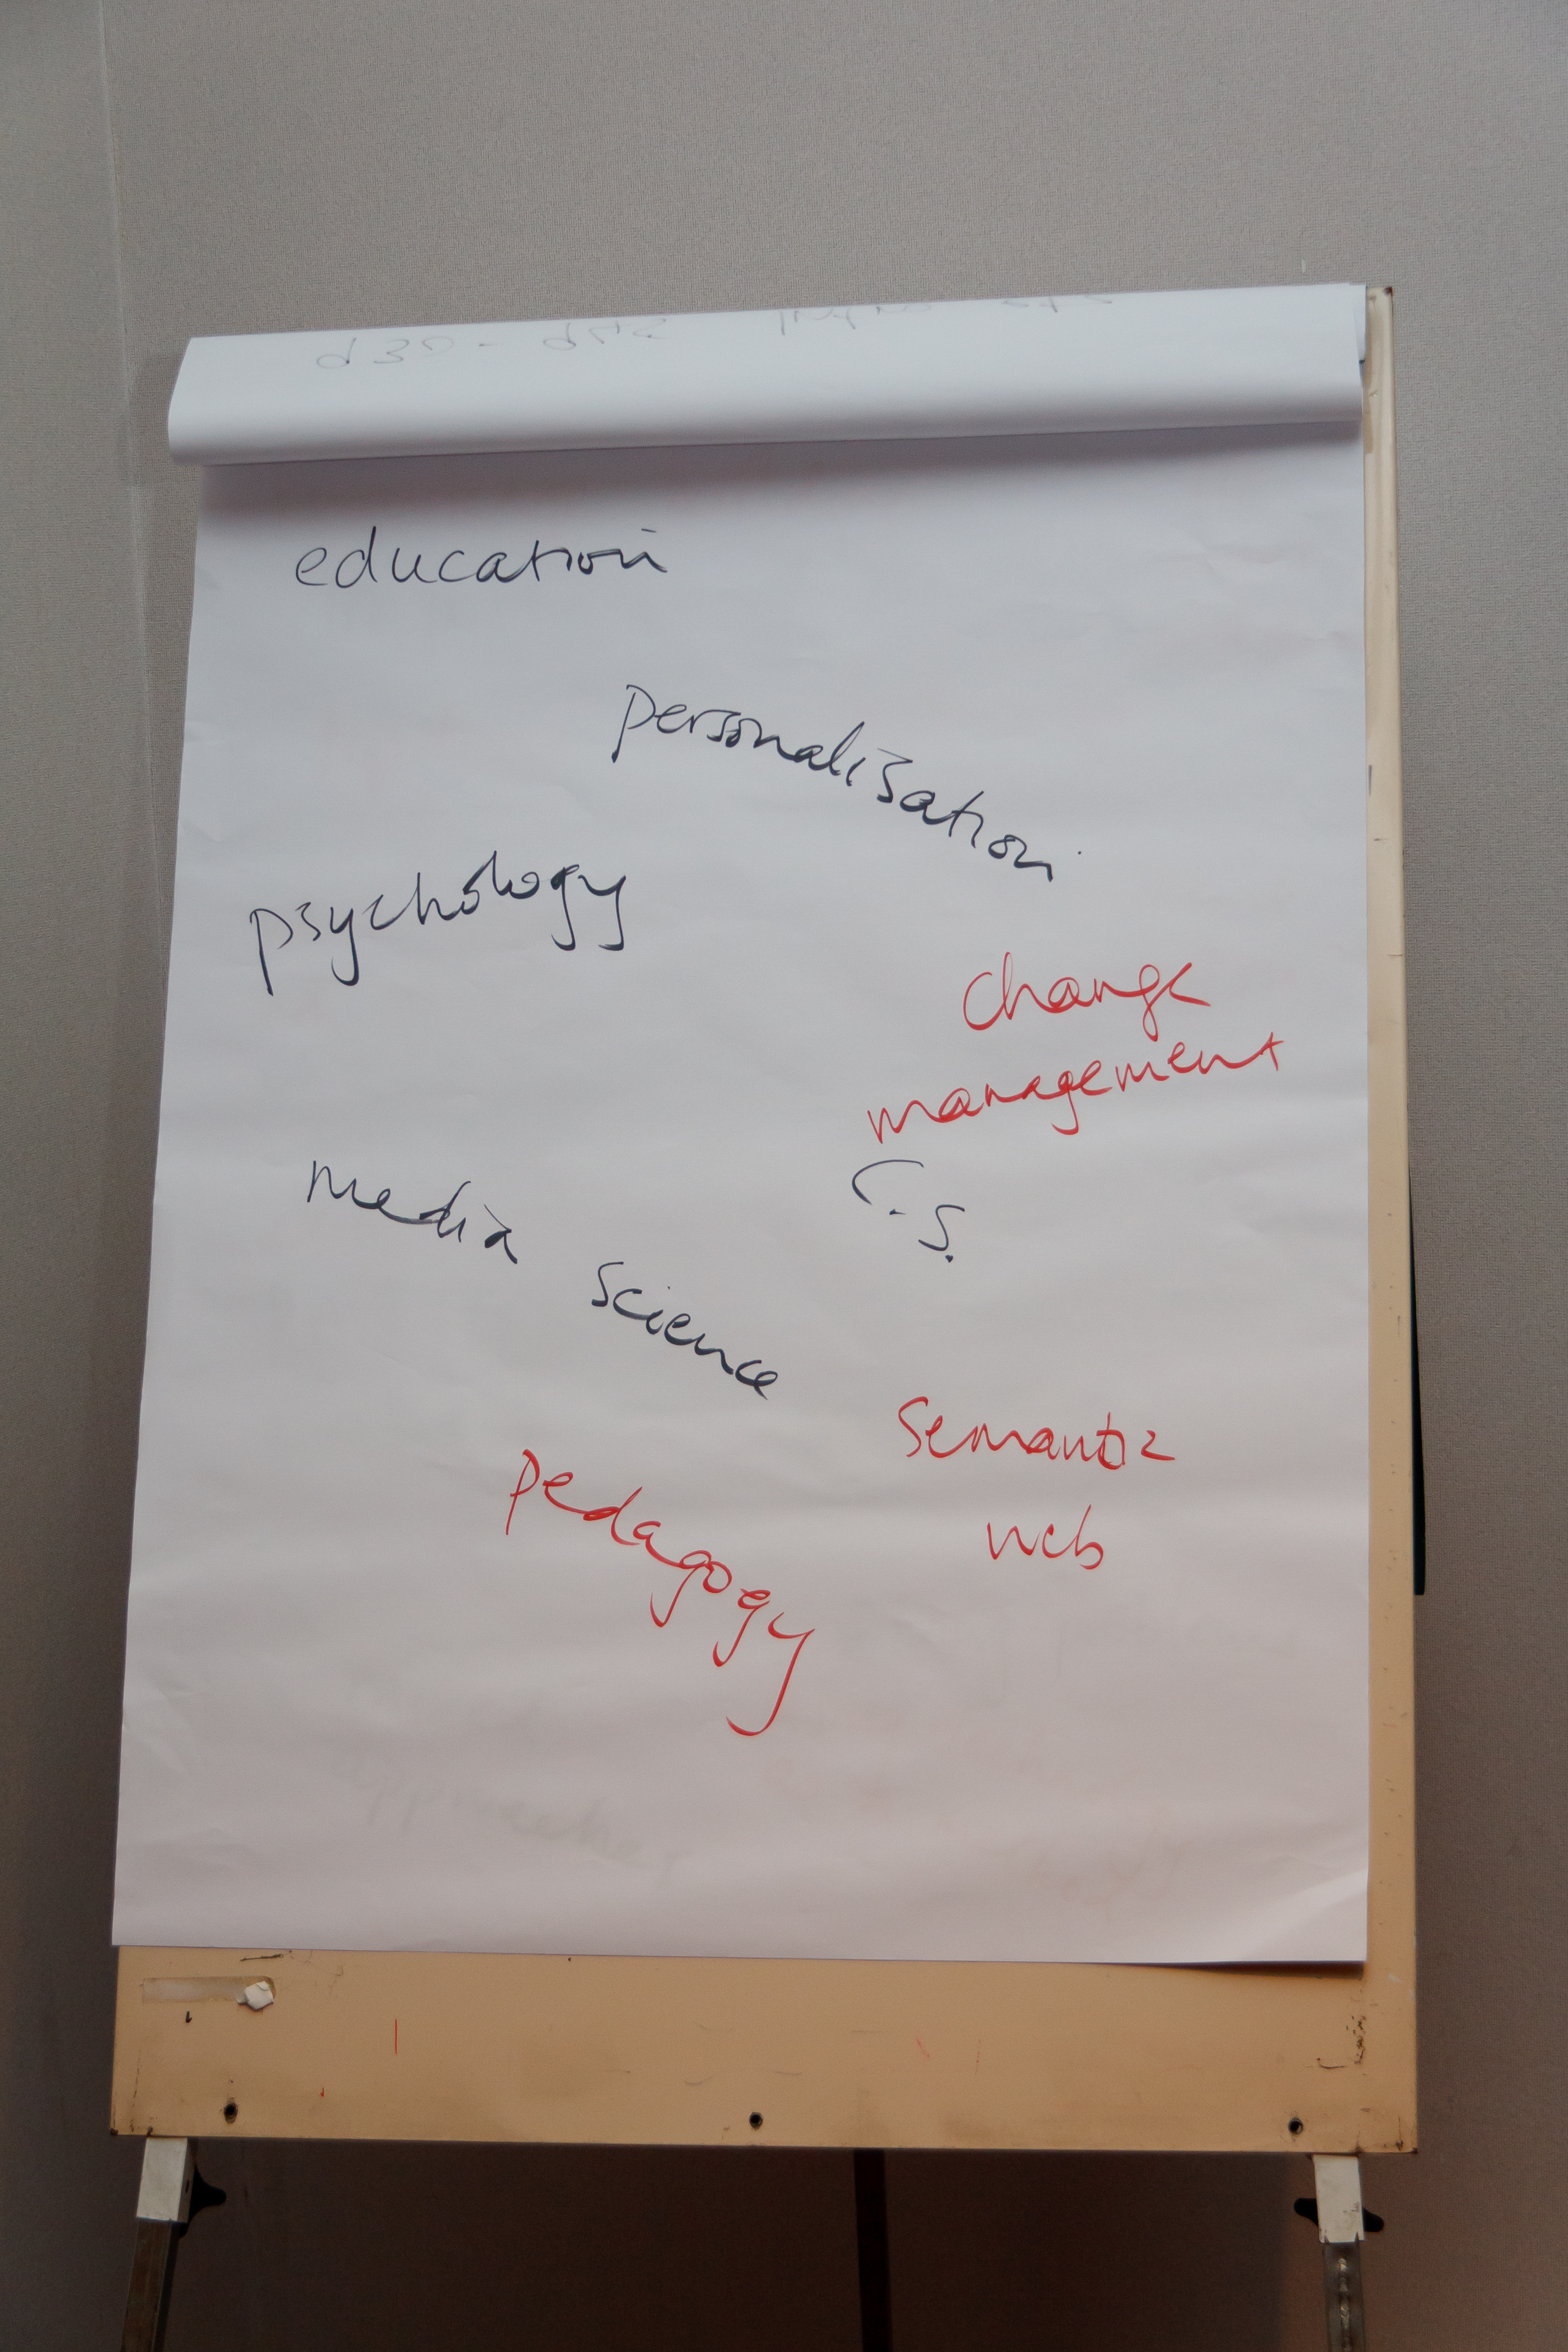 930 - 945 Intro etc
education
personalisation
psychology
change
management
C.S.
media science
semantic
web
pedagogy